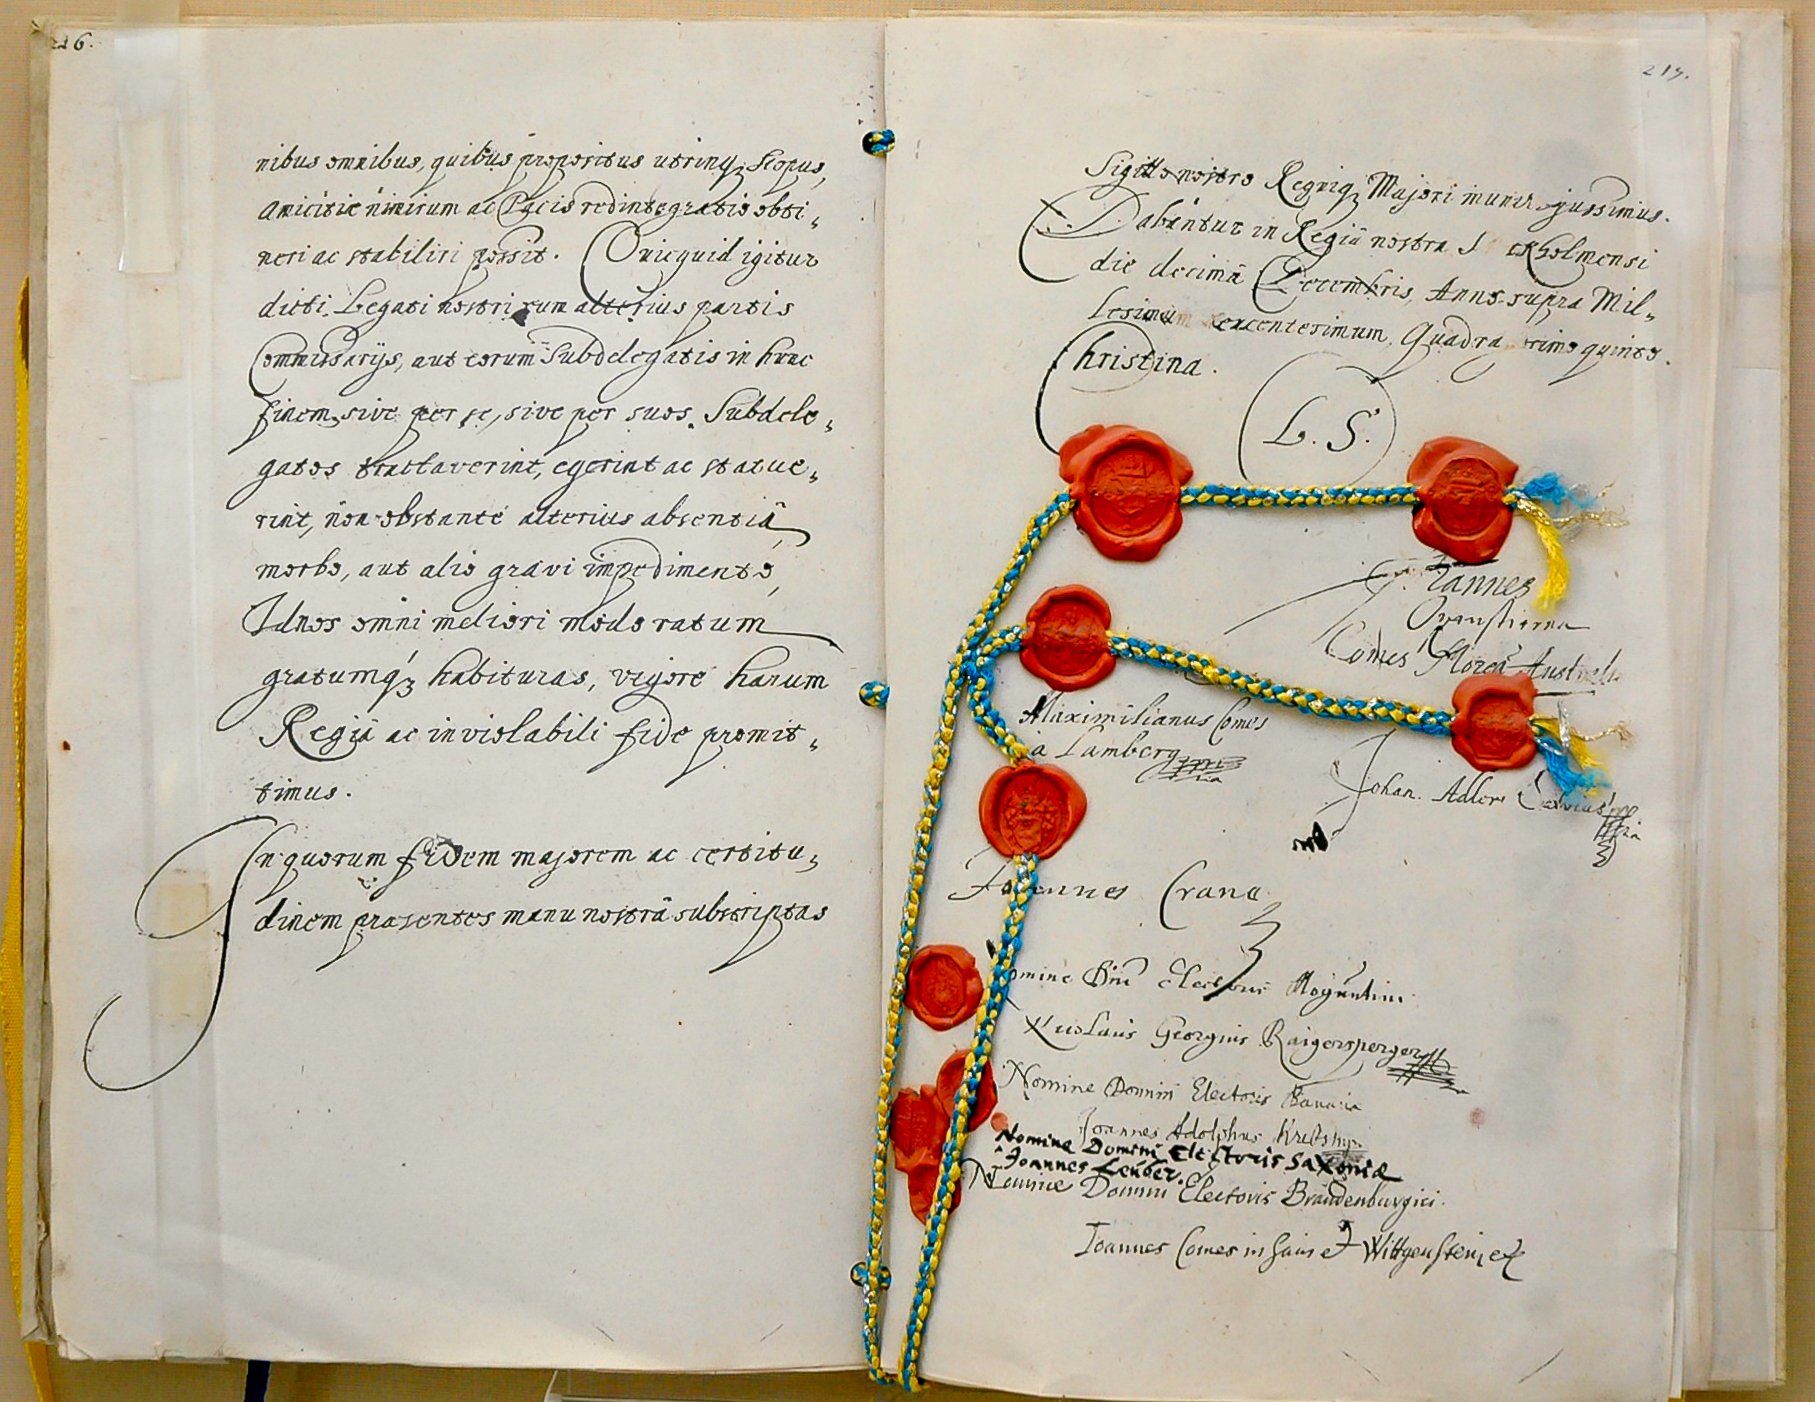 216.
nibus omnibus, quibus propositus utrinq; Scopus,
Amicitiæ nimirum ac Pacis redintegratio obti„
neri ac stabiliri possit. Quicquid igitur
dicti Legati nostri cum alterius partis
Commissarijs, aut eorum Subdelegatis in hunc
finem, sive per se, sive per suos Subdele„
gatos tractaverint, egerint ac statue„
rint, non obstante alterius absentiâ,
morbo, aut alio gravi impedimento,
Id nos omni meliori modo ratum
gratumq; habituras, vigore harum
Regiâ ac inviolabili fide promit„
timus.
In quorum fidem majorem ac certitu„
dinem præsentes manu nostrâ subscriptas
217.
Sigillo nostro Regniq; Majori muniri jussimus.
Dabantur in Regiâ nostra Stockholmensi
die decimâ Decembris, Anno supra Mil„
lesimum sexcentesimum, Quadragesimo quinto.
Christina.
L. S.
Johannes
Oxenstierna
Comes Moreæ Australis
Maximilianus Comes
à Lamberg
Johan. Adler Salvius
Joannes Crane
Nomine Dni Electoris Moguntini
Nicolaus Georgius Raigersperger
Nomine Domini Electoris Bavariæ
Joannes Adolphus Krebs
Nomine Domini Electoris Saxoniæ
Joannes Leuber.
Nomine Domini Electoris Brandenburgici.
Joannes Comes in Sain et Wittgenstein